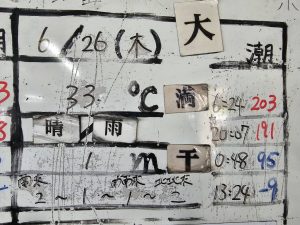 潮 6/26(木) 大 潮
33 ℃ 満 6:24 203
晴/雨 20:07 191
1 m 干 0:48 95
南東 北北東 13:24 -9
2~1~1~2